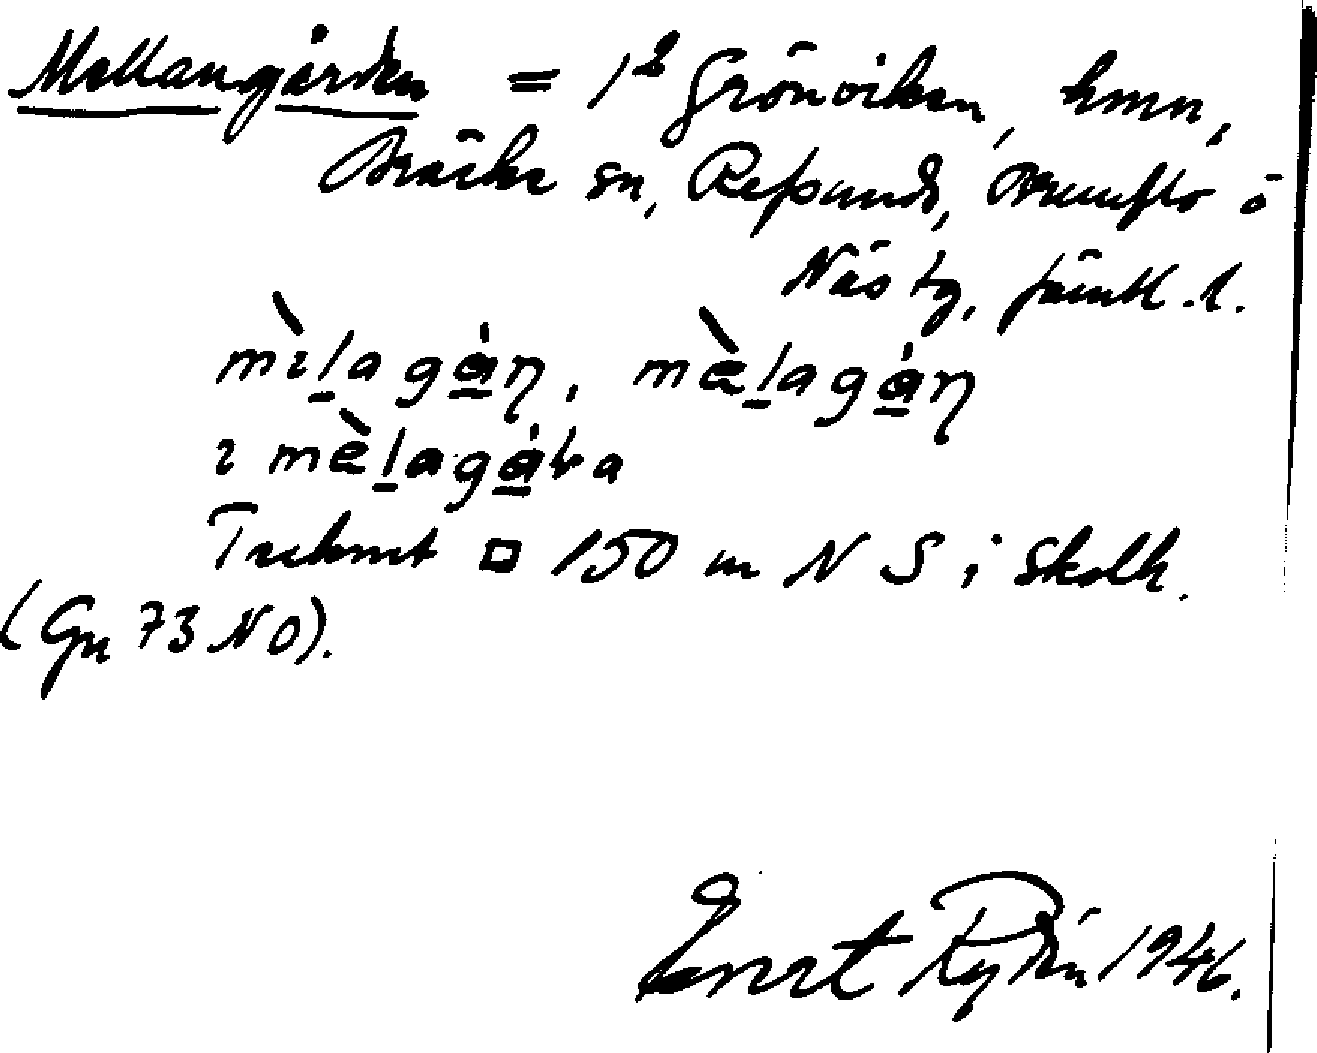 Mellangården = 1² Grönviken, hmn,
Bräcke sn, Refsunds, Brunflo o
Näs tg, Jämtl. l.
mɩ̀lagáṇ, mèlagáṇ
ɩ mèlagáka
Trekant □ 150 m N S i Skolh.
(Gn 73 NO).
Evert Rydén 1946.